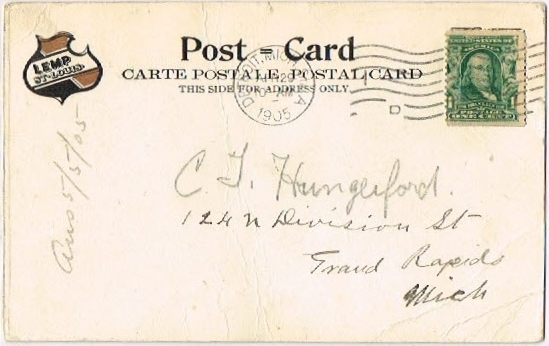 LEMP
ST. LOUIS.
Post = Card
CARTE POSTALE. POSTAL CARD
THIS SIDE FOR ADDRESS ONLY.
DETROIT, MICH.
1905
UNITED STATES OF AMERICA
POSTAGE
ONE CENT
Ans 5/5/05
C. J. Hungerford.
124 N Division St
Grand Rapids
Mich